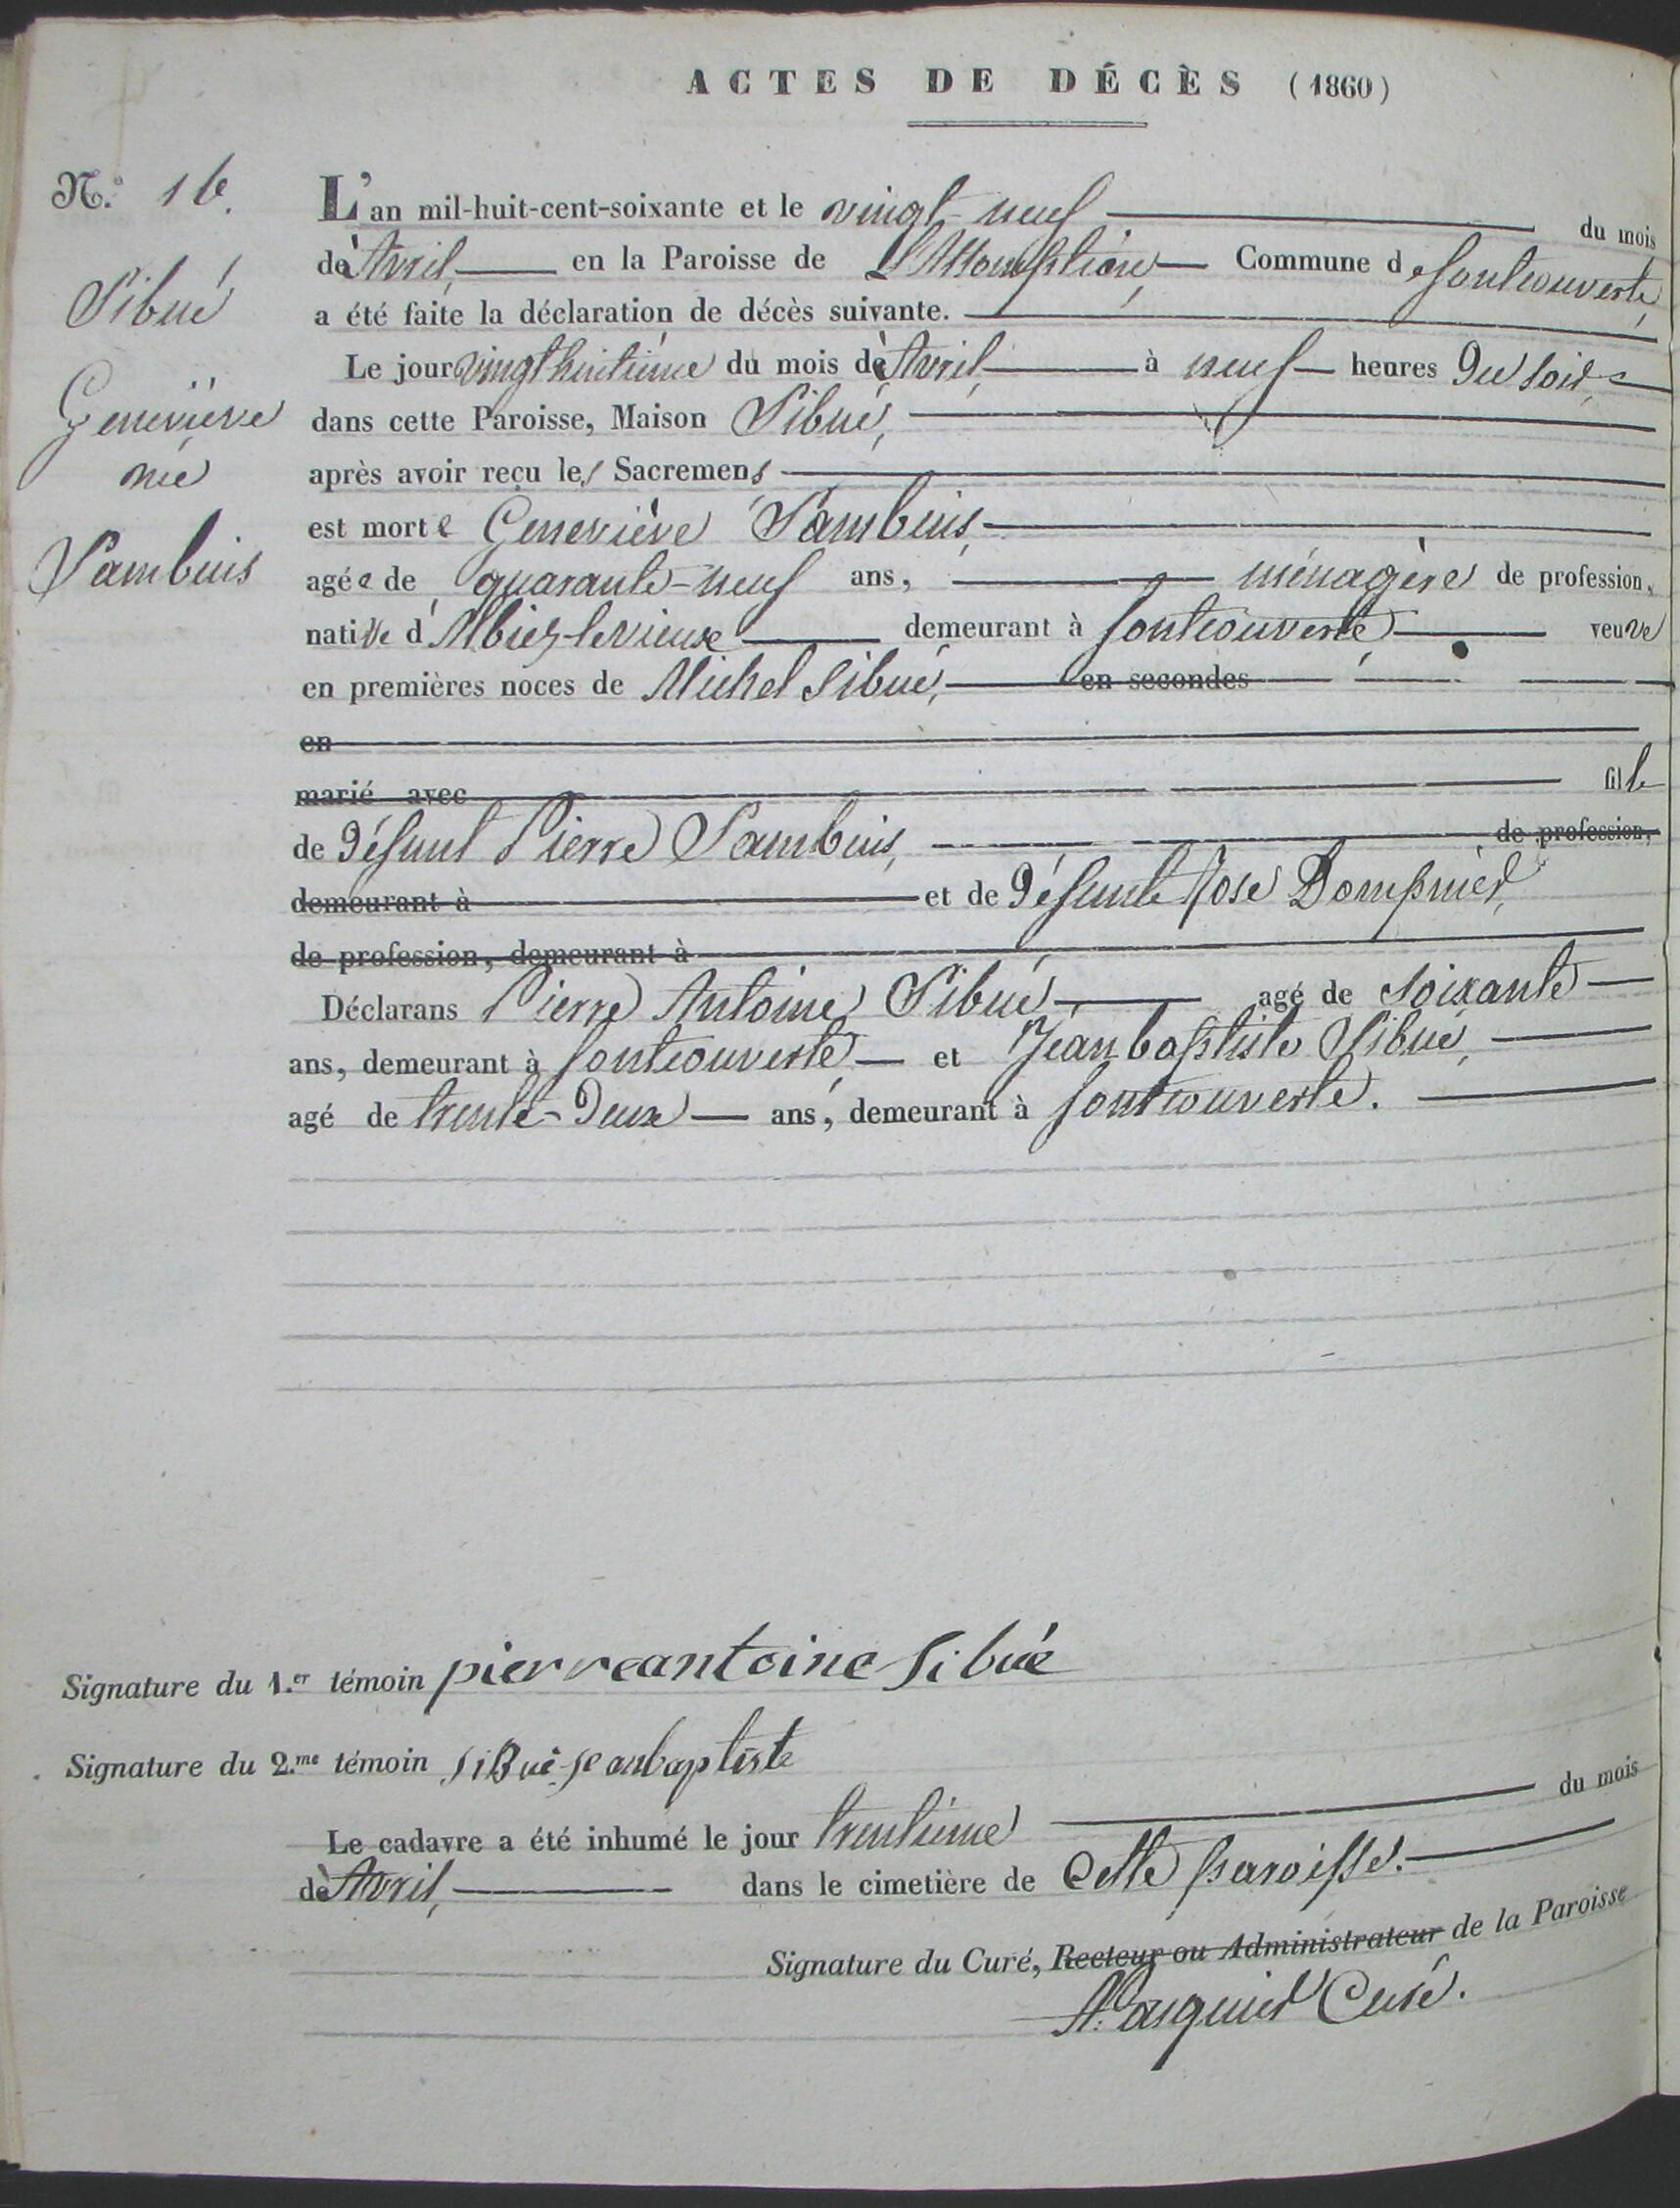 ACTES DE DÉCÈS (1860)
N.° 16.
Sibué
Geneviève
née
Sambuis
L'an mil-huit-cent-soixante et le vingt-neuf du mois
de Avril, en la Paroisse de L'Assomption, Commune de fontcouverte,
a été faite la déclaration de décès suivante.
Le jour vingt huitième du mois de Avril, à neuf heures Du soir,
dans cette Paroisse, Maison Sibué,
après avoir reçu les Sacremens
est morte Geneviève Sambuis,
agée de quarante-neuf ans, ménagère de profession,
native d'Albiez-le vieux demeurant à fontcouverte, veuve
en premières noces de Michel Sibué, en secondes
en
marié avec fille
de Défunt Pierre Sambuis, de profession,
demeurant à et de Défunte Rose Dompnier,
de profession, demeurant à
Déclarans Pierre Antoine Sibué agé de soixante
ans, demeurant à fontcouverte, et Jean baptiste Sibué,
agé de trente-Deux ans, demeurant à fontcouverte.
Signature du 1.er témoin pierreantoine Sibué
Signature du 2.me témoin SiBué jeanbaptiste
Le cadavre a été inhumé le jour trentième du mois
de Avril, dans le cimetière de Cette paroisse.
Signature du Curé, Recteur ou Administrateur de la Paroisse
Curé.